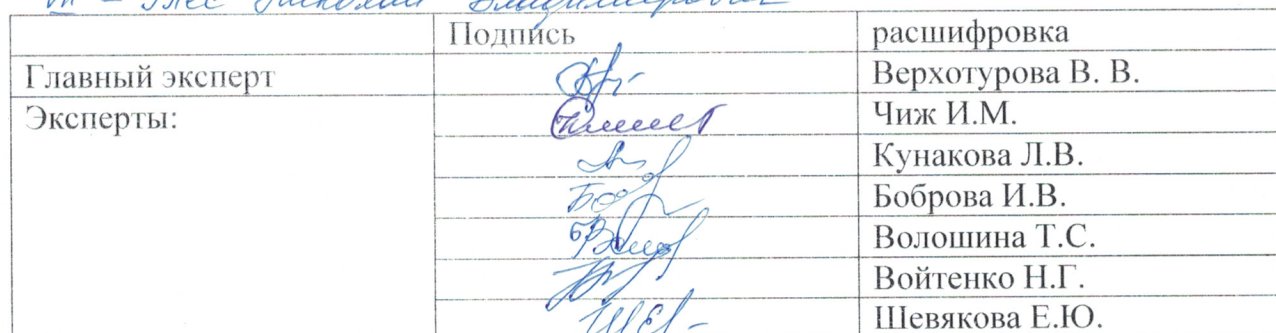 Владимирович
Подпись расшифровка
Главный эксперт Верхотурова В. В.
Эксперты: Чиж И.М.
Кунакова Л.В.
Боброва И.В.
Волошина Т.С.
Войтенко Н.Г.
Шевякова Е.Ю.